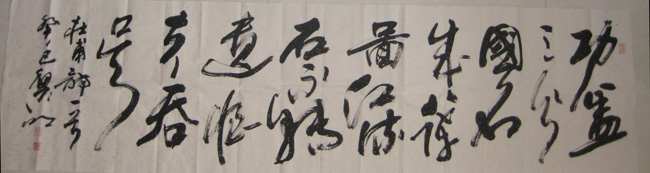 功盖
三分
國名
成八陣
圖江流
石不轉
遺恨
失吞
吳
杜甫詩一首
癸巳